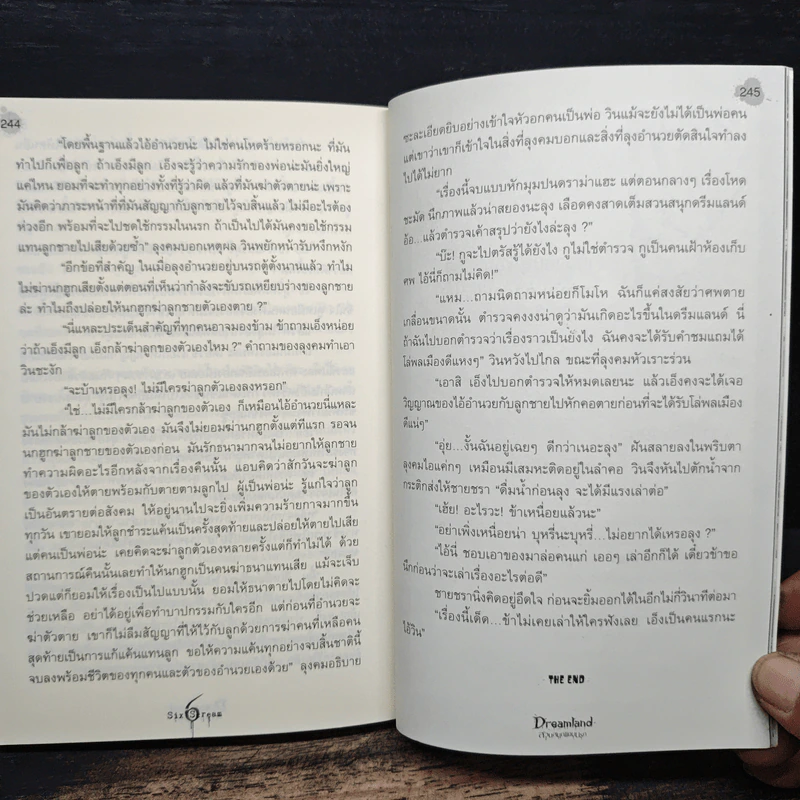 244
"โดยพื้นฐานแล้วไอ้อำนวยน่ะ ไม่ใช่คนโหดร้ายหรอกนะ ที่มัน
ทำไปก็เพื่อลูก ถ้าเอ็งมีลูก เอ็งจะรู้ว่าความรักของพ่อน่ะมันยิ่งใหญ่
แค่ไหน ยอมที่จะทำทุกอย่างทั้งที่รู้ว่าผิด แล้วที่มันฆ่าตัวตายน่ะ เพราะ
มันคิดว่าภาระหน้าที่ที่มันสัญญากับลูกชายไว้จบสิ้นแล้ว ไม่มีอะไรต้อง
ห่วงอีก พร้อมที่จะไปชดใช้กรรมในนรก ถ้าเป็นไปได้มันคงขอใช้กรรม
แทนลูกชายไปเสียด้วยซ้ำ" ลุงคมบอกเหตุผล วินพยักหน้ารับหงึกหงัก
"อีกข้อที่สำคัญ ในเมื่อลุงอำนวยอยู่บนรถตู้ตั้งนานแล้ว ทำไม
ไม่ฆ่านกฮูกเสียตั้งแต่ตอนที่เห็นว่ากำลังจะขับรถเหยียบร่างของลูกชาย
ล่ะ ทำไมถึงปล่อยให้นกฮูกฆ่าลูกชายตัวเองตาย ?"
"นี่แหละประเด็นสำคัญที่ทุกคนอาจมองข้าม ข้าถามเอ็งหน่อย
ว่าถ้าเอ็งมีลูก เอ็งกล้าฆ่าลูกของตัวเองไหม ?" คำถามของลุงคมทำเอา
วินชะงัก
"จะบ้าเหรอลุง! ไม่มีใครฆ่าลูกตัวเองลงหรอก"
"ใช่...ไม่มีใครกล้าฆ่าลูกของตัวเอง ก็เหมือนไอ้อำนวยนี่แหละ
มันไม่กล้าฆ่าลูกของตัวเอง มันจึงไม่ยอมฆ่านกฮูกตั้งแต่ทีแรก รอจน
นกฮูกฆ่าลูกชายของตัวเองก่อน มันรักธนามากจนไม่อยากให้ลูกชาย
ทำความผิดอะไรอีกหลังจากเรื่องคืนนั้น แอบคิดว่าสักวันจะฆ่าลูก
ของตัวเองให้ตายพร้อมกับตายตามลูกไป ผู้เป็นพ่อน่ะ รู้แก่ใจว่าลูก
เป็นอันตรายต่อสังคม ให้อยู่นานไปจะยิ่งเพิ่มความร้ายกาจมากขึ้น
ทุกวัน เขายอมให้ลูกชำระแค้นเป็นครั้งสุดท้ายและปล่อยให้ตายไปเสีย
แต่คนเป็นพ่อน่ะ เคยคิดจะฆ่าลูกตัวเองหลายครั้งแต่ก็ทำไม่ได้ ด้วย
สถานการณ์คืนนั้นเลยทำให้นกฮูกเป็นคนฆ่าธนาแทนเสีย แม้จะเจ็บ
ปวดแต่ก็ยอมให้เรื่องเป็นไปแบบนั้น ยอมให้ธนาตายไปโดยไม่คิดจะ
ช่วยเหลือ อย่าได้อยู่เพื่อทำบาปกรรมกับใครอีก แต่ก่อนที่อำนวยจะ
ฆ่าตัวตาย เขาก็ไม่ลืมสัญญาที่ให้ไว้กับลูกด้วยการฆ่าคนที่เหลือคน
สุดท้ายเป็นการแก้แค้นแทนลูก ขอให้ความแค้นทุกอย่างจบสิ้นชาตินี้
จบลงพร้อมชีวิตของทุกคนและตัวของอำนวยเองด้วย" ลุงคมอธิบาย
Six Scream
245
ซะละเอียดยิบอย่างเข้าใจหัวอกคนเป็นพ่อ วินแม้จะยังไม่ได้เป็นพ่อคน
แต่เขาว่าเขาก็เข้าใจในสิ่งที่ลุงคมบอกและสิ่งที่ลุงอำนวยตัดสินใจทำลง
ไปได้ไม่ยาก
"เรื่องนี้จบแบบหักมุมปนดราม่าแฮะ แต่ตอนกลางๆ เรื่องโหด
ชะมัด นึกภาพแล้วน่าสยองนะลุง เลือดคงสาดเต็มสวนสนุกดรีมแลนด์
อ้อ...แล้วตำรวจเค้าสรุปว่ายังไงล่ะลุง ?"
"บ๊ะ! กูจะไปตรัสรู้ได้ยังไง กูไม่ใช่ตำรวจ กูเป็นคนเฝ้าห้องเก็บ
ศพ ไอ้นี่ก็ถามไม่คิด!"
"แหม...ถามนิดถามหน่อยก็โมโห ฉันก็แค่สงสัยว่าศพตาย
เกลื่อนขนาดนั้น ตำรวจคงงงน่าดูว่ามันเกิดอะไรขึ้นในดรีมแลนด์ นี่
ถ้าฉันไปบอกตำรวจว่าเรื่องราวเป็นยังไง ฉันคงจะได้รับคำชมแถมได้
โล่พลเมืองดีแหงๆ" วินหวังไปไกล ขณะที่ลุงคมหัวเราะร่วน
"เอาสิ เอ็งไปบอกตำรวจให้หมดเลยนะ แล้วเอ็งคงจะได้เจอ
วิญญาณของไอ้อำนวยกับลูกชายไปหักคอตายก่อนที่จะได้รับโล่พลเมือง
ดีแน่ๆ"
"อุ่ย...งั้นฉันอยู่เฉยๆ ดีกว่าเนอะลุง" ฝันสลายลงในพริบตา
ลุงคมไอแค่กๆ เหมือนมีเสมหะติดอยู่ในลำคอ วินจึงหันไปตักน้ำจาก
กระติกส่งให้ชายชรา "ดื่มน้ำก่อนลุง จะได้มีแรงเล่าต่อ"
"เฮ้ย! อะไรวะ! ข้าเหนื่อยแล้วนะ"
"อย่าเพิ่งเหนื่อยน่า บุหรี่นะบุหรี่...ไม่อยากได้เหรอลุง ?"
"ไอ้นี่ ชอบเอาของมาล่อคนแก่ เออๆ เล่าอีกก็ได้ เดี๋ยวข้าขอ
นึกก่อนว่าจะเล่าเรื่องอะไรต่อดี"
ชายชรานิ่งคิดอยู่อึดใจ ก่อนจะยิ้มออกได้ในอีกไม่กี่วินาทีต่อมา
"เรื่องนี้เด็ด...ข้าไม่เคยเล่าให้ใครฟังเลย เอ็งเป็นคนแรกนะ
ไอ้วิน"
THE END
Dreamland